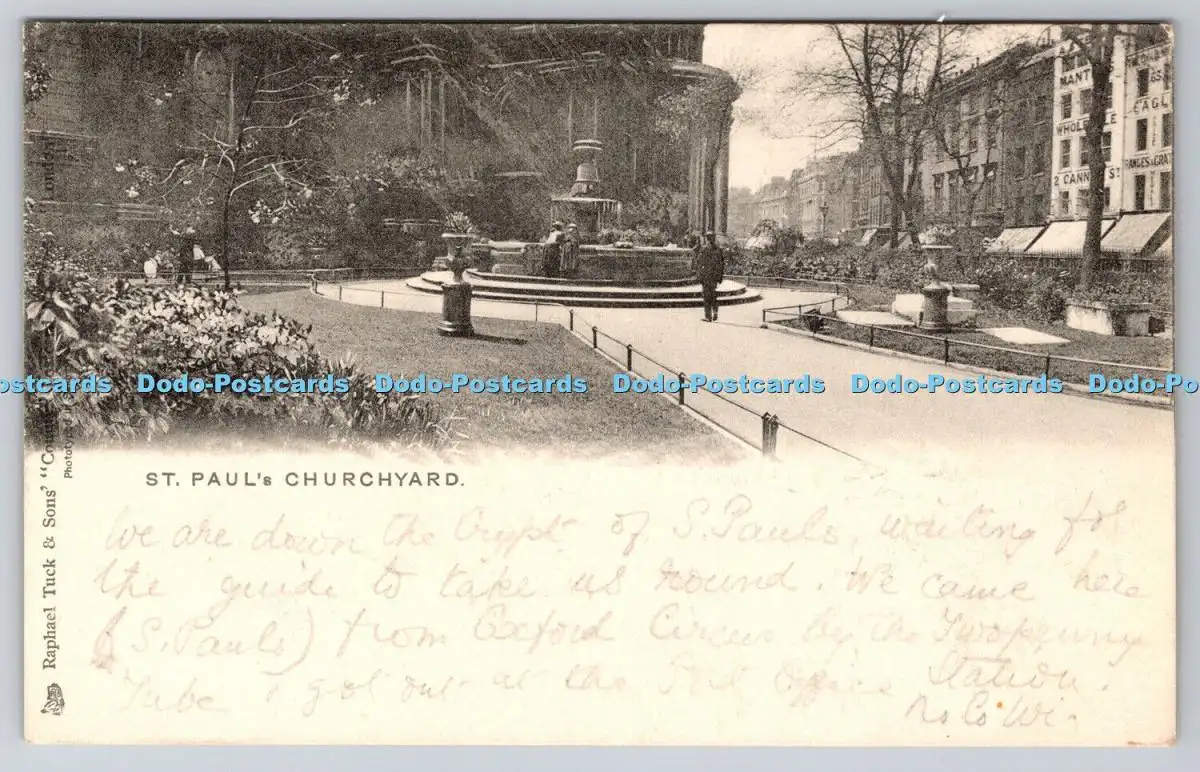 MANT
WHOLE LE
2 CANN ST
EAGL
RANGES & GRAT
Dodo-Postcards Dodo-Postcards Dodo-Postcards Dodo-Postcards Dodo-Postcards
ST. PAUL's CHURCHYARD.
Raphael Tuck & Sons' "Cou London
We are down the Crypt of S. Pauls, waiting for
the guide to take us round. We came here
(S. Pauls) from Oxford Circus by the Twopenny
Tube & got out at the Post Office Station.